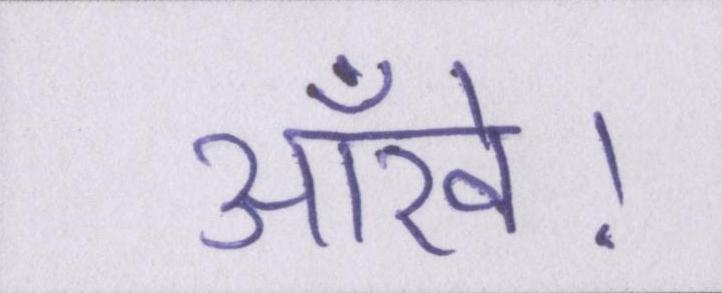 आँखे!